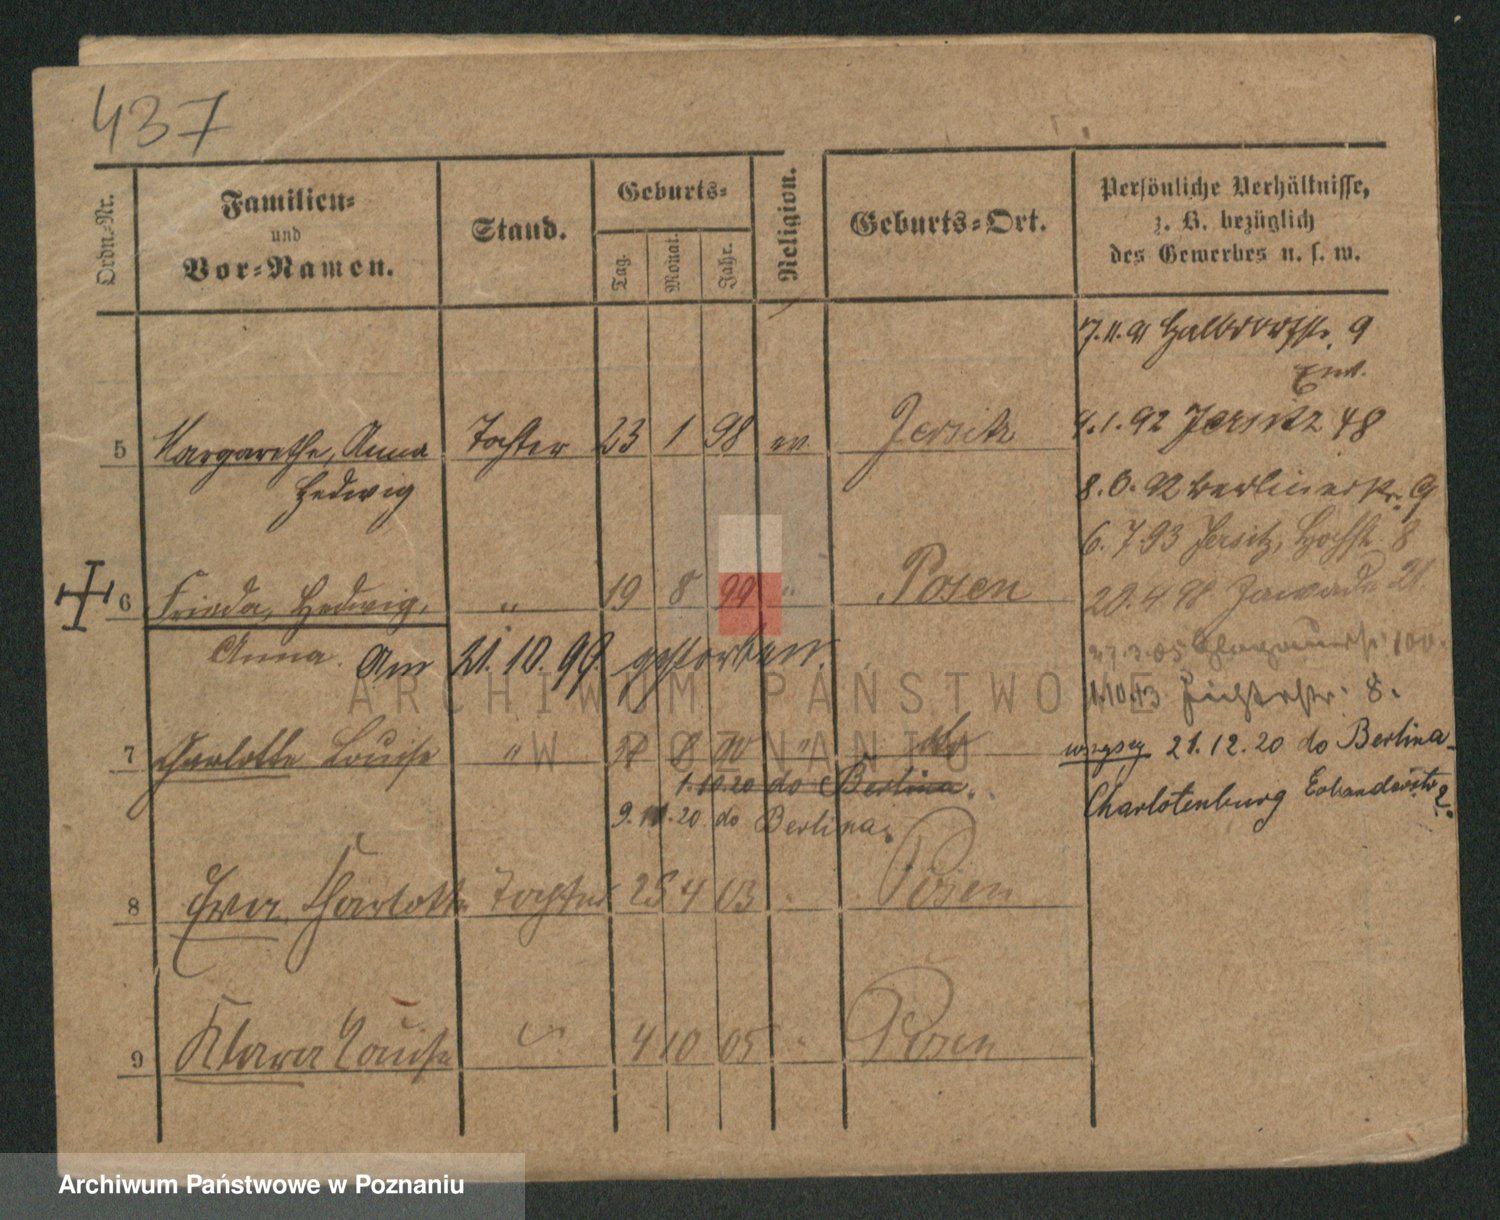 437
Ordn.-Nr.
Familien-
und
Vor-Namen.
Stand.
Geburts-
Tag.
Monat.
Jahr.
Religion.
Geburts-Ort.
Persönliche Verhältnisse,
z. B. bezüglich
des Gewerbes u. s. w.
7.11.91 Halbdorfstr. 9
5 Margarethe, Anna Tochter 23 1 98 ev. Jersitz
Hedwig
4.1.92 Jersitz 48
8.6.92 Berlinerstr. 9
6.7.93 Jersitz, Hochstr. 8
6 Frieda, Hedwig, " 19 8 99 " Posen
Anna. Am 21.10.99 gestorben.
20.4.98 Zawade 21.
27.3.05 100.
1.10.13 8.
7 Charlotte Louise " 8 "
1.10.20 do Berlina.
9.11.20 do Berlina.
21.12.20 do Berlina-
Charlotenburg
8 Eva, Charlotte Tochter 25 4 03 " Posen
9 Klara Louise " 4 10 05 " Posen
ARCHIWUM PAŃSTWOWE
W POZNANIU
Archiwum Państwowe w Poznaniu